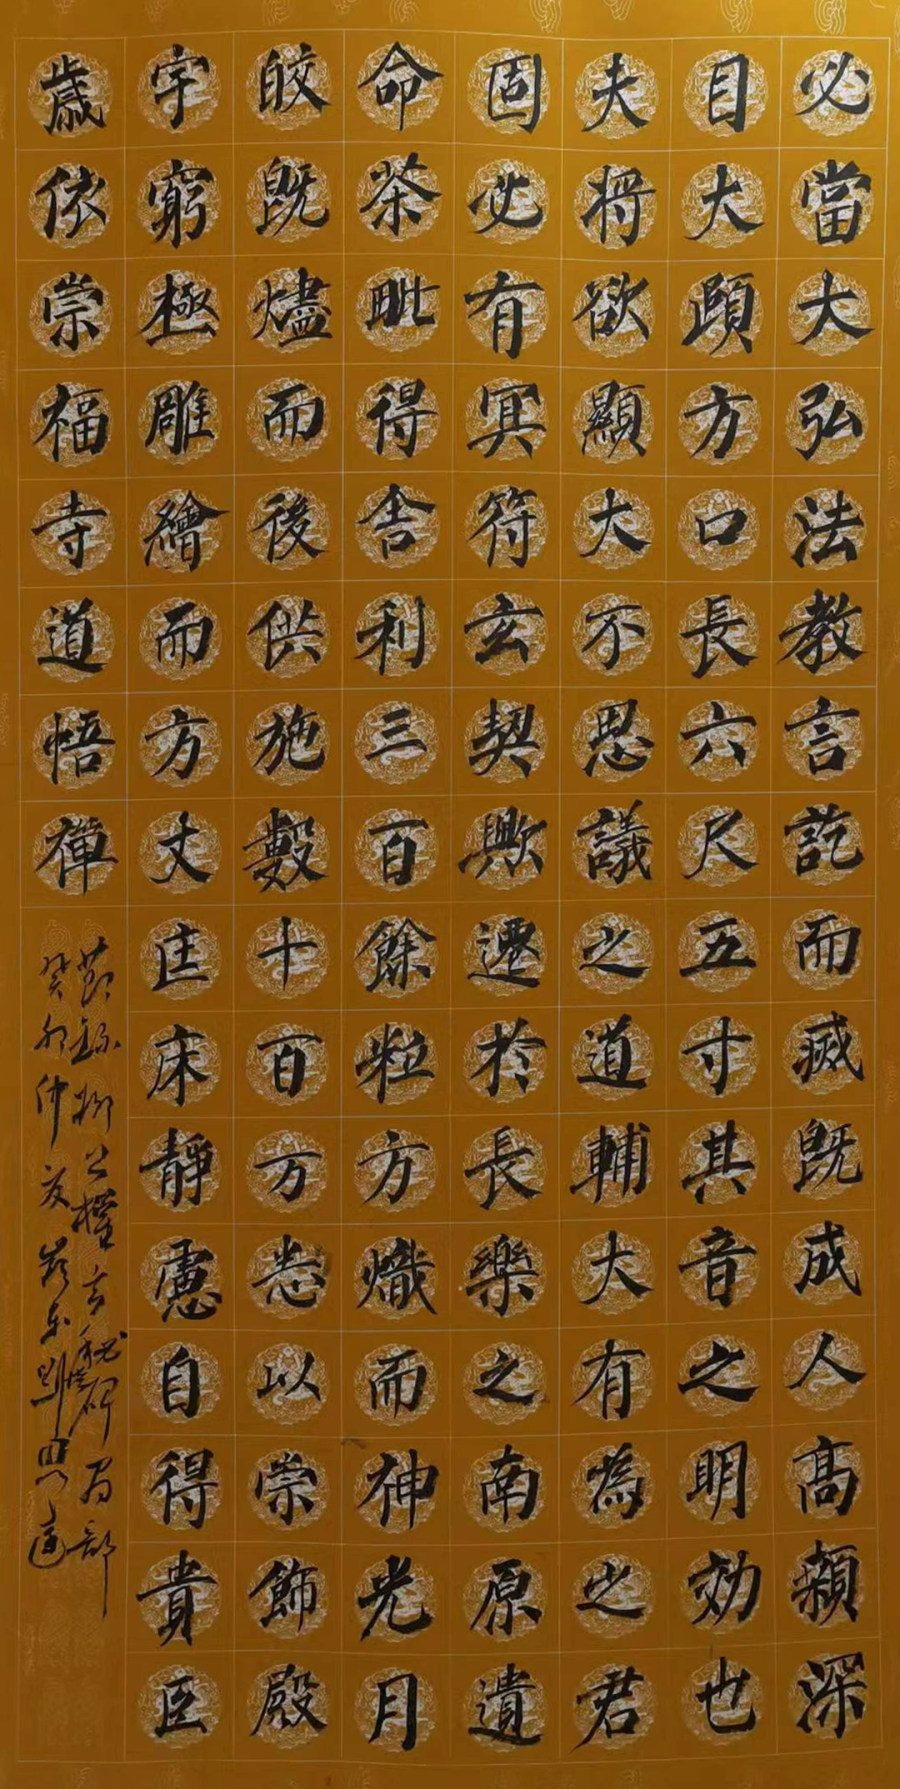 必當大弘法教言訖而滅既成人高顙深
目大頤方口長六尺五寸其音之明効也
夫將欲顯大不思議之道輔大有為之君
固必有冥符玄契歟遷於長樂之南原遺
命茶毗得舍利三百餘粒方熾而神光月
皎既燼而後供施數十百万悉以崇飾殿
宇窮極雕繪而方丈匡床靜慮自得貴臣
歲依崇福寺道悟禪
節錄柳公權玄秘塔碑局部
癸卯仲夏